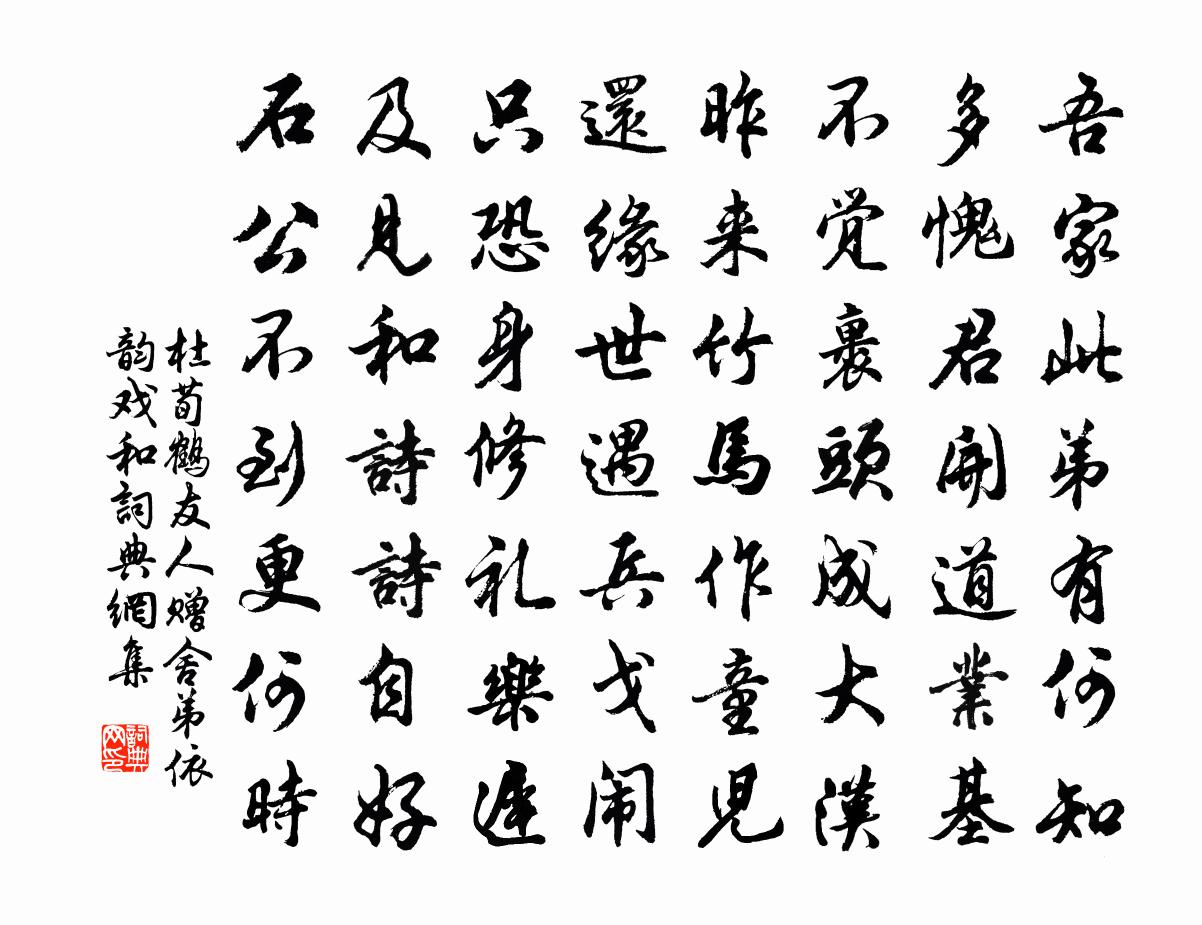 吾家此弟有何知
多愧君開道業基
不覚裹頭成大漢
昨来竹馬作童児
還緣世遇兵戈闹
只恐身修礼樂遲
及見和詩詩自好
石公不到更何時
杜荀鶴友人赠舍弟依
韵戏和詞典網集
詞典
网印